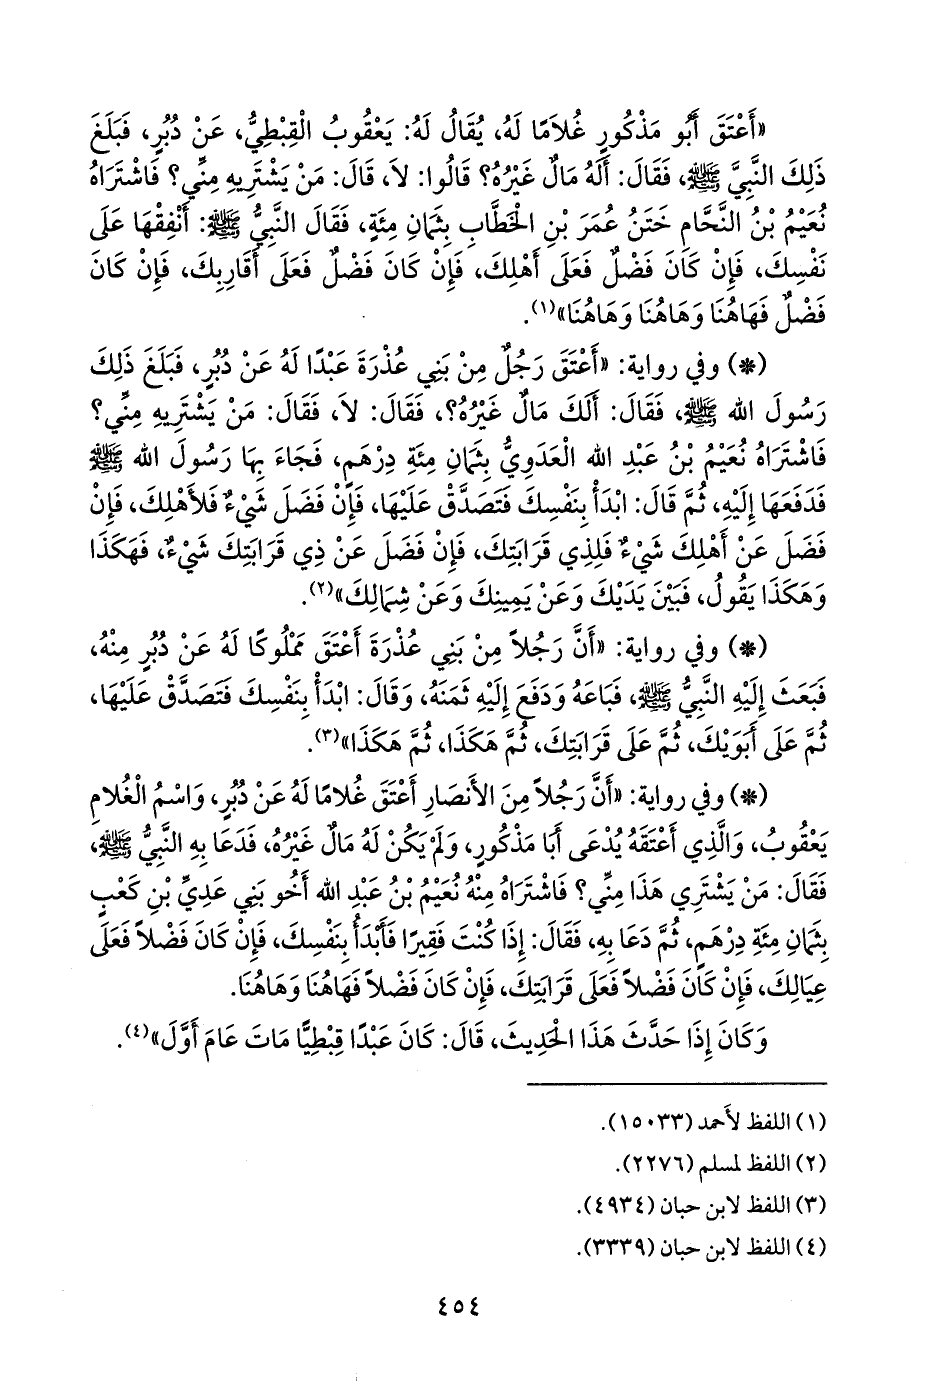 «أَعْتَقَ أَبُو مَذْكُورٍ غُلاَمًا لَهُ، يُقَالُ لَهُ: يَعْقُوبُ الْقِبْطِيُّ، عَنْ دُبُرٍ، فَبَلَغَ
ذَلِكَ النَّبِيَّ ﷺ، فَقَالَ: أَلَهُ مَالٌ غَيْرُهُ؟ قَالُوا: لاَ، قَالَ: مَنْ يَشْتَرِيهِ مِنِّي؟ فَاشْتَرَاهُ
نُعَيْمُ بْنُ النَّحَّامِ خَتَنُ عُمَرَ بْنِ الْخَطَّابِ بِثَمَانِ مِئَةٍ، فَقَالَ النَّبِيُّ ﷺ: أَنْفِقْهَا عَلَى
نَفْسِكَ، فَإِنْ كَانَ فَضْلٌ فَعَلَى أَهْلِكَ، فَإِنْ كَانَ فَضْلٌ فَعَلَى أَقَارِبِكَ، فَإِنْ كَانَ
فَضْلٌ فَهَاهُنَا وَهَاهُنَا وَهَاهُنَا»(١).
(*) وفي رواية: «أَعْتَقَ رَجُلٌ مِنْ بَنِي عُذْرَةَ عَبْدًا لَهُ عَنْ دُبُرٍ، فَبَلَغَ ذَلِكَ
رَسُولَ الله ﷺ، فَقَالَ: أَلَكَ مَالٌ غَيْرُهُ؟، فَقَالَ: لاَ، فَقَالَ: مَنْ يَشْتَرِيهِ مِنِّي؟
فَاشْتَرَاهُ نُعَيْمُ بْنُ عَبْدِ الله الْعَدَوِيُّ بِثَمَانِ مِئَةِ دِرْهَمٍ، فَجَاءَ بِهَا رَسُولَ الله ﷺ
فَدَفَعَهَا إِلَيْهِ، ثُمَّ قَالَ: ابْدَأْ بِنَفْسِكَ فَتَصَدَّقْ عَلَيْهَا، فَإِنْ فَضَلَ شَيْءٌ فَلأَهْلِكَ، فَإِنْ
فَضَلَ عَنْ أَهْلِكَ شَيْءٌ فَلِذِي قَرَابَتِكَ، فَإِنْ فَضَلَ عَنْ ذِي قَرَابَتِكَ شَيْءٌ، فَهَكَذَا
وَهَكَذَا يَقُولُ، فَبَيْنَ يَدَيْكَ وَعَنْ يَمِينِكَ وَعَنْ شِمَالِكَ»(٢).
(*) وفي رواية: «أَنَّ رَجُلاً مِنْ بَنِي عُذْرَةَ أَعْتَقَ مَمْلُوكًا لَهُ عَنْ دُبُرٍ مِنْهُ،
فَبَعَثَ إِلَيْهِ النَّبِيُّ ﷺ، فَبَاعَهُ وَدَفَعَ إِلَيْهِ ثَمَنَهُ، وَقَالَ: ابْدَأْ بِنَفْسِكَ فَتَصَدَّقْ عَلَيْهَا،
ثُمَّ عَلَى أَبَوَيْكَ، ثُمَّ عَلَى قَرَابَتِكَ، ثُمَّ هَكَذَا، ثُمَّ هَكَذَا»(٣).
(*) وفي رواية: «أَنَّ رَجُلاً مِنَ الأَنْصَارِ أَعْتَقَ غُلاَمًا لَهُ عَنْ دُبُرٍ، وَاسْمُ الْغُلاَمِ
يَعْقُوبُ، وَالَّذِي أَعْتَقَهُ يُدْعَى أَبَا مَذْكُورٍ، وَلَمْ يَكُنْ لَهُ مَالٌ غَيْرُهُ، فَدَعَا بِهِ النَّبِيُّ ﷺ،
فَقَالَ: مَنْ يَشْتَرِي هَذَا مِنِّي؟ فَاشْتَرَاهُ مِنْهُ نُعَيْمُ بْنُ عَبْدِ الله أَخُو بَنِي عَدِيِّ بْنِ كَعْبٍ
بِثَمَانِ مِئَةِ دِرْهَمٍ، ثُمَّ دَعَا بِهِ، فَقَالَ: إِذَا كُنْتَ فَقِيرًا فَأَبْدَأُ بِنَفْسِكَ، فَإِنْ كَانَ فَضْلاً فَعَلَى
عِيَالِكَ، فَإِنْ كَانَ فَضْلاً فَعَلَى قَرَابَتِكَ، فَإِنْ كَانَ فَضْلاً فَهَاهُنَا وَهَاهُنَا.
وَكَانَ إِذَا حَدَّثَ هَذَا الْحَدِيثَ، قَالَ: كَانَ عَبْدًا قِبْطِيًّا مَاتَ عَامَ أَوَّلَ»(٤).
(١) اللفظ لأَحمد (١٥٠٣٣).
(٢) اللفظ لمسلم (٢٢٧٦).
(٣) اللفظ لابن حبان (٤٩٣٤).
(٤) اللفظ لابن حبان (٣٣٣٩).
٤٥٤